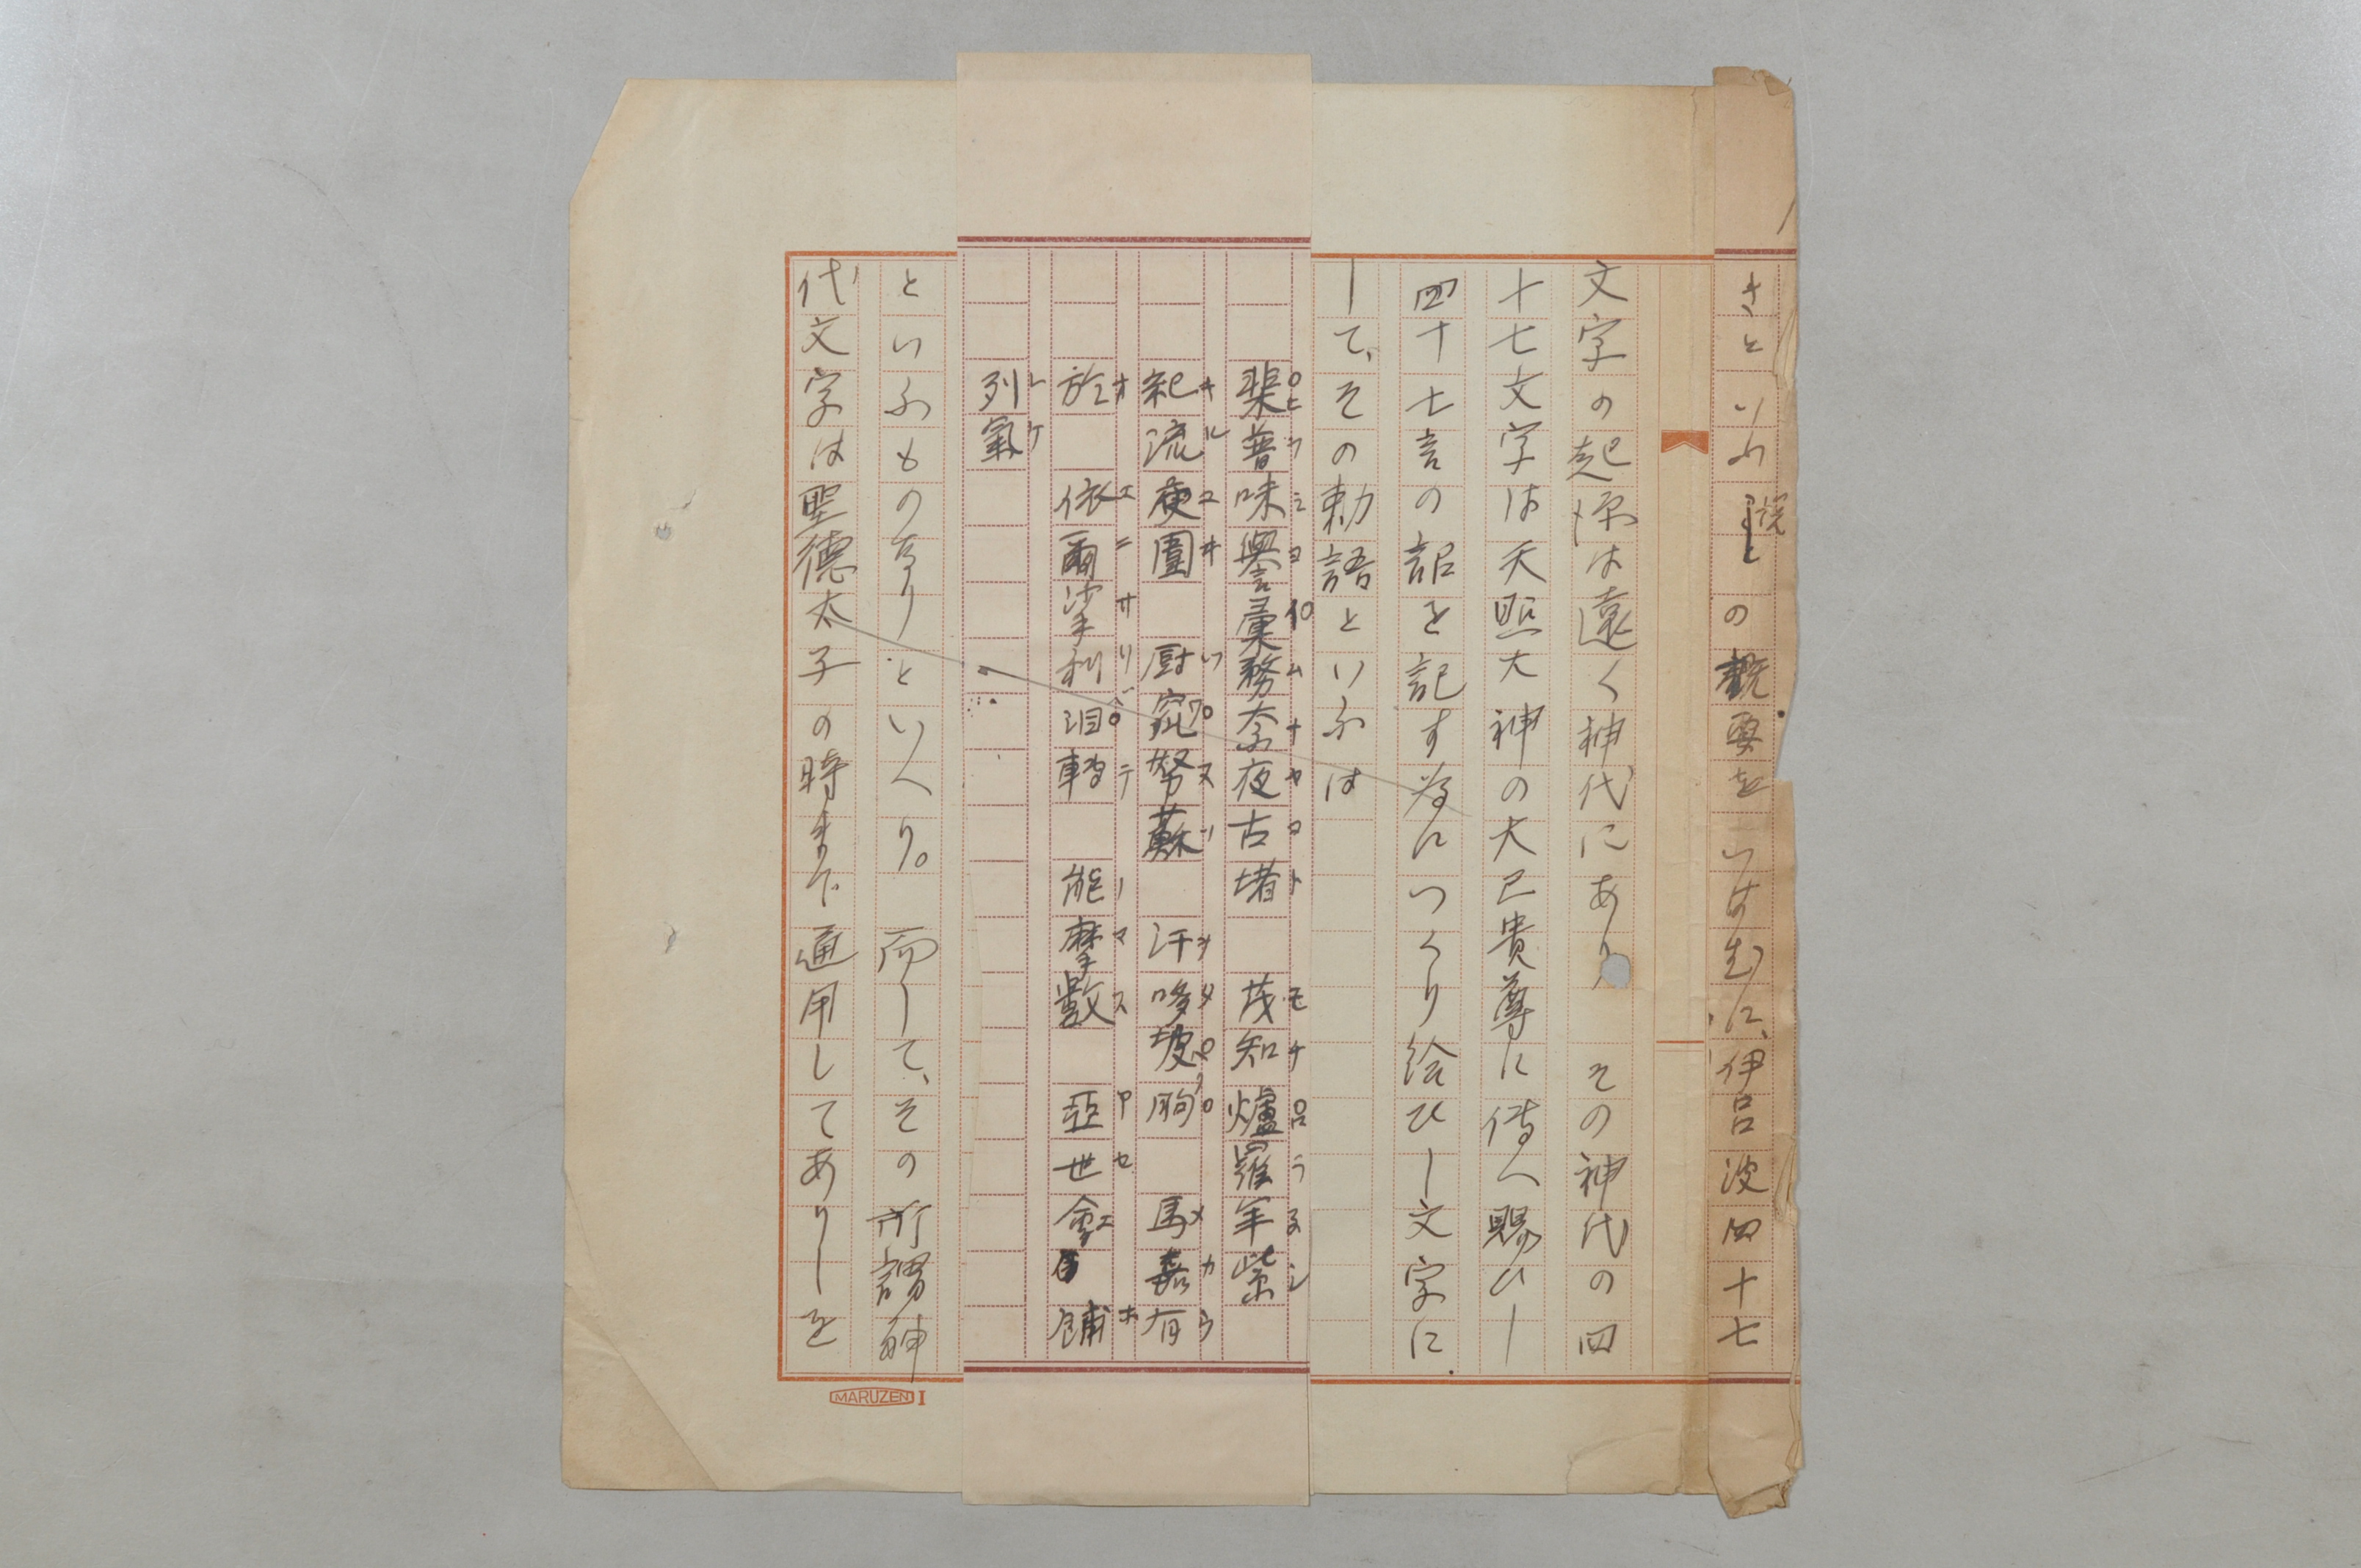 きといふ説の概要をいはむに、伊呂波四十七
文字の起源は遠く神代にあり その神代の四
十七文字は天照大神の大己貴尊に傳へ賜ひし
四十七言の詔を記す為につくり給ひし文字に
して、その勅語といふは
普味譽務奈夜古堵 茂知爐羅年紫
紀流 圍 厨 努蘇 汗哆坡 馬嘉有
於 依爾挐利泪 能摩數 亞世會 餔
列氣
といふものなりといへり。 而して、その所謂神
代文字は聖德太子の時まで通用してありしを
MARUZEN I